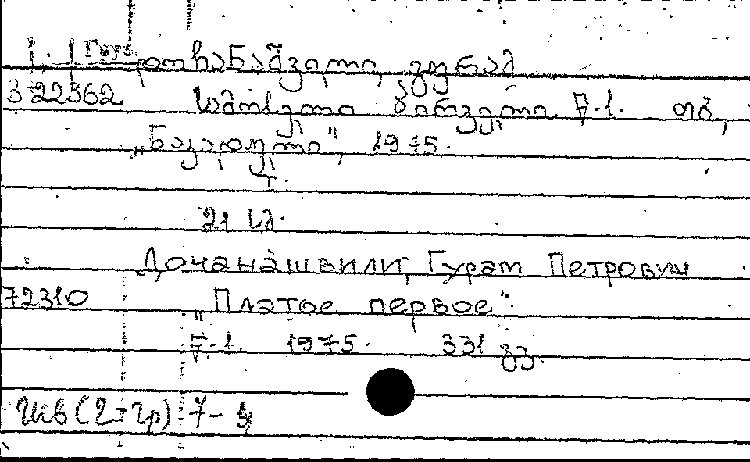 Груз. დოჩანაშვილი, გურამ
322362 სამოსელი პირველი წ.1. თბ.,
„ნაკადული", 1975.
ს.
21 სმ.
Дочанашвили, Гурам Петрович
72310 „Платье первое".
წ.1. 1975. 331 გვ.